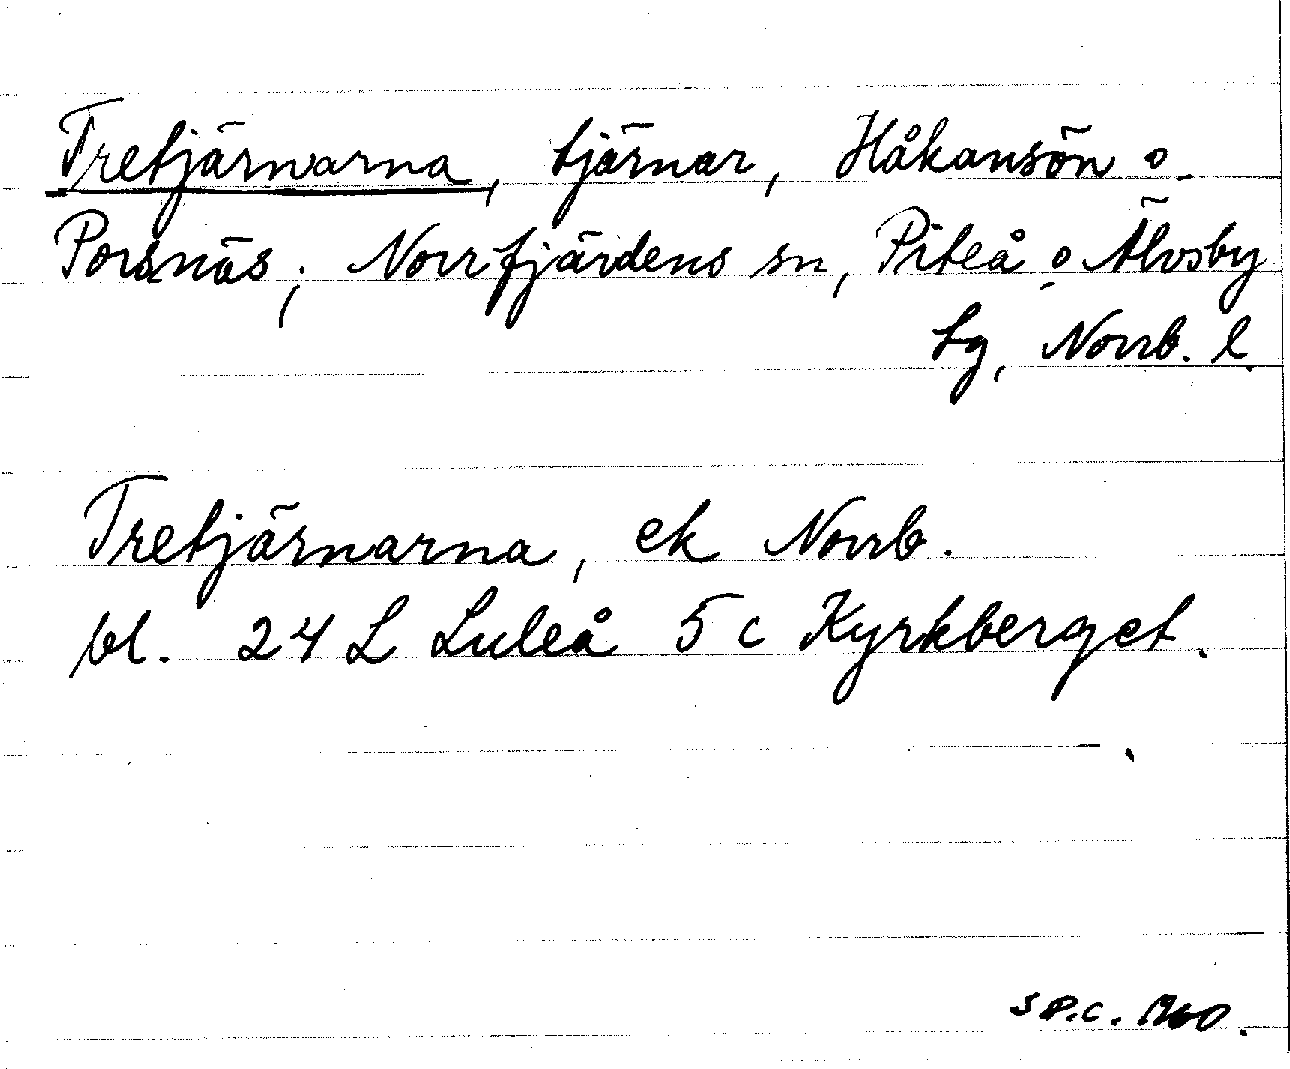 Tretjärnarna, tjärnar, Håkansön o.
Porsnäs, Norrfjärdens sn, Piteå o. Älvsby
tg, Norrb. l.
Tretjärnarna, ek Norrb.
bl. 24 L Luleå 5 c Kyrkberget.
S P.C. 1960.